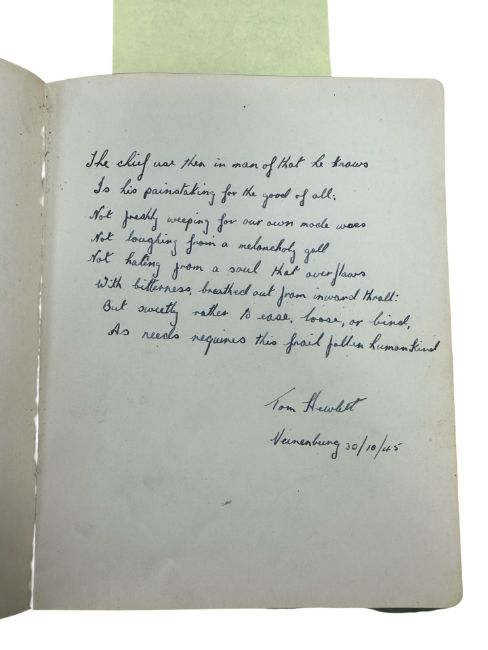 The chief use then in man of that he knows
Is his painstaking for the good of all:
Not freshly weeping for our own made woes
Not laughing from a melancholy gall
Not hating from a soul that overflows
With bitterness, breathed out from inward thrall:
But sweetly rather to ease, loose, or bind,
As needs requires this frail fallen humankind
Tom Hewlett
Vienenburg 30/10/45